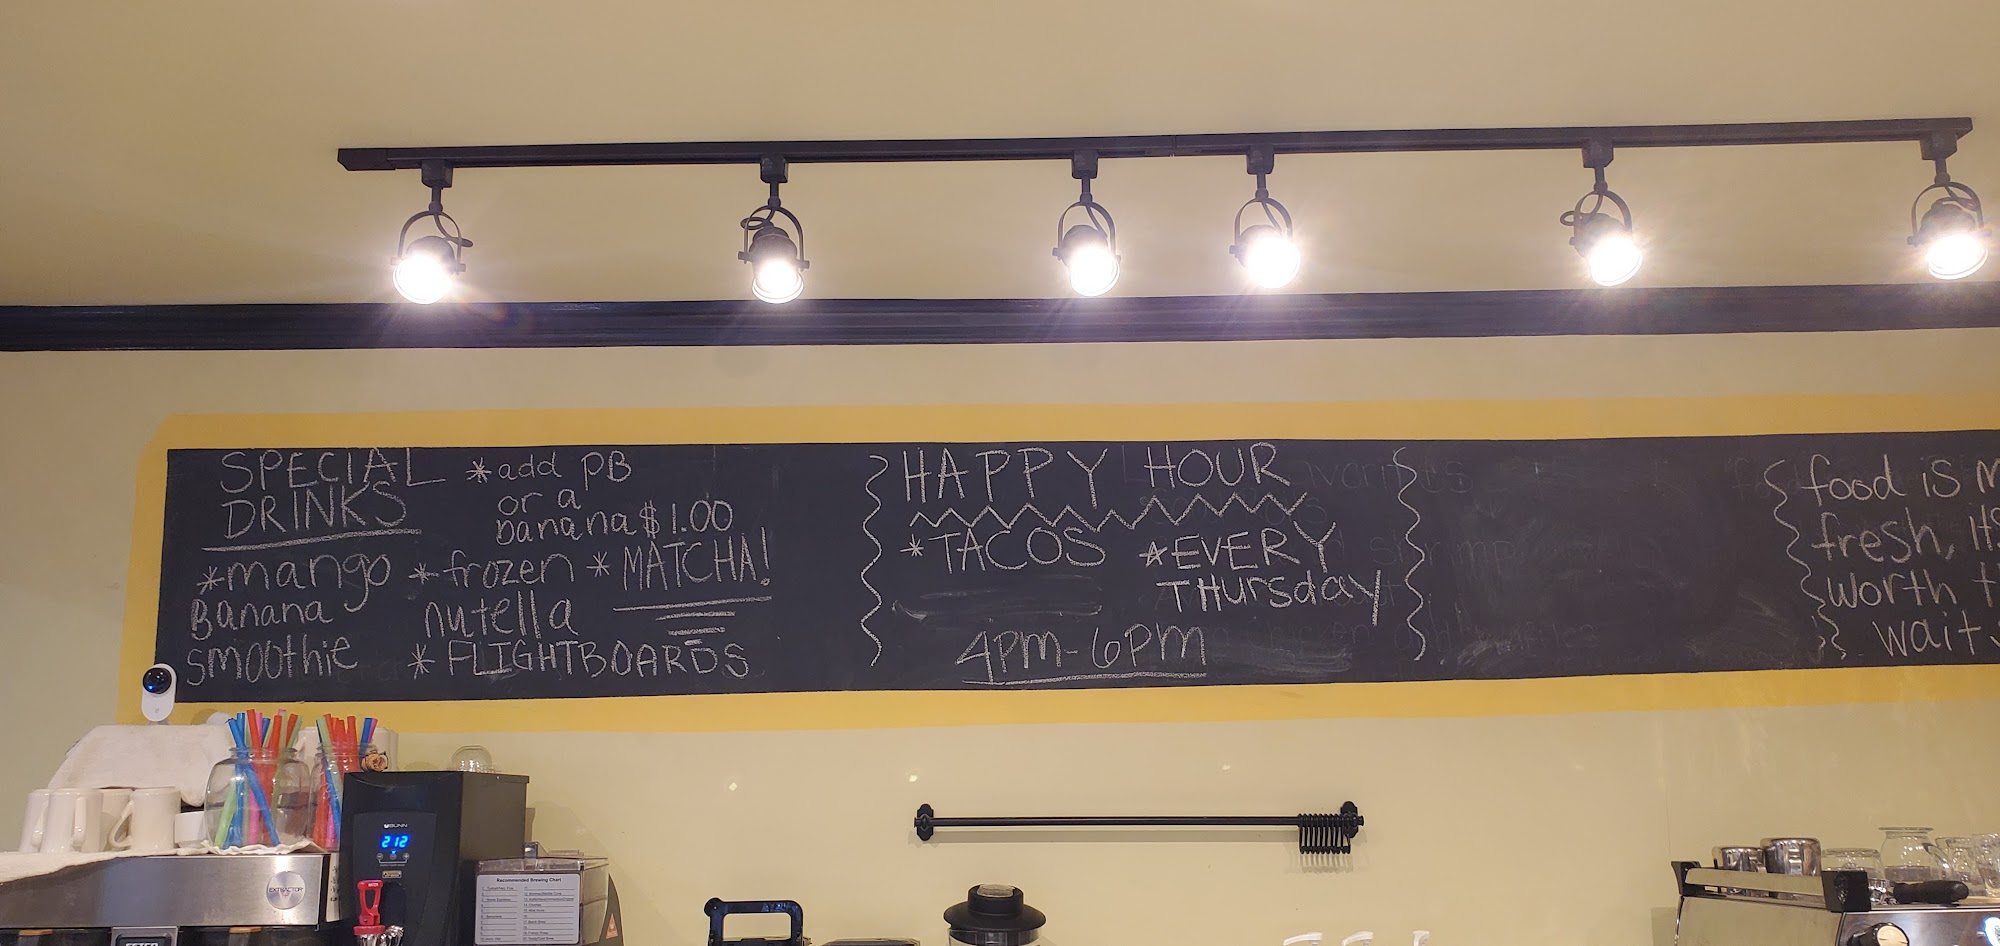 SPECIAL
DRINKS
*add PB
or a
banana $1.00
*mango
Banana
smoothie
*frozen
nutella
*MATCHA!
*FLIGHTBOARDS
HAPPY HOUR
*TACOS
*EVERY
THursday
4PM-6PM
food is
fresh, It's
worth
wait
BUNN
212
EXTRACTOR
Recommended Brewing Chart